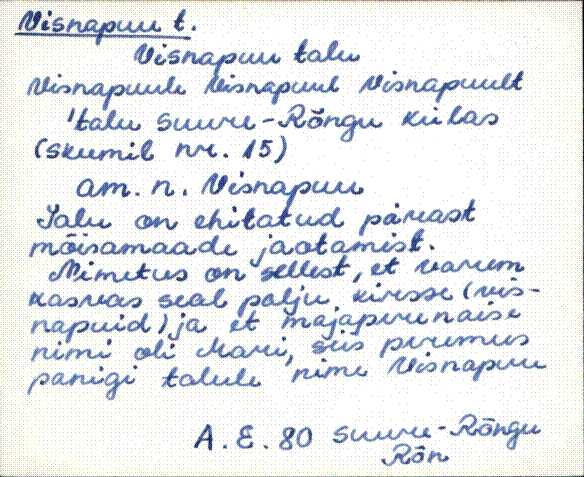 Visnapuu t.
Visnapuu talu
Visnapuule Visnapuul Visnapuult
'talu Suure-Rõngu külas
(skumil nr. 15)
am. n. Visnapuu
Talu on ehitatud pärast
mõisamaade jaotamist.
Nimetus on sellest, et varem
kasvas seal palju kirsse (vis-
napuid) ja et majaperenaise
nimi oli Mari, siis peremees
panigi talule nime Visnapuu
A. E. 80 Suure-Rõngu
Rõn